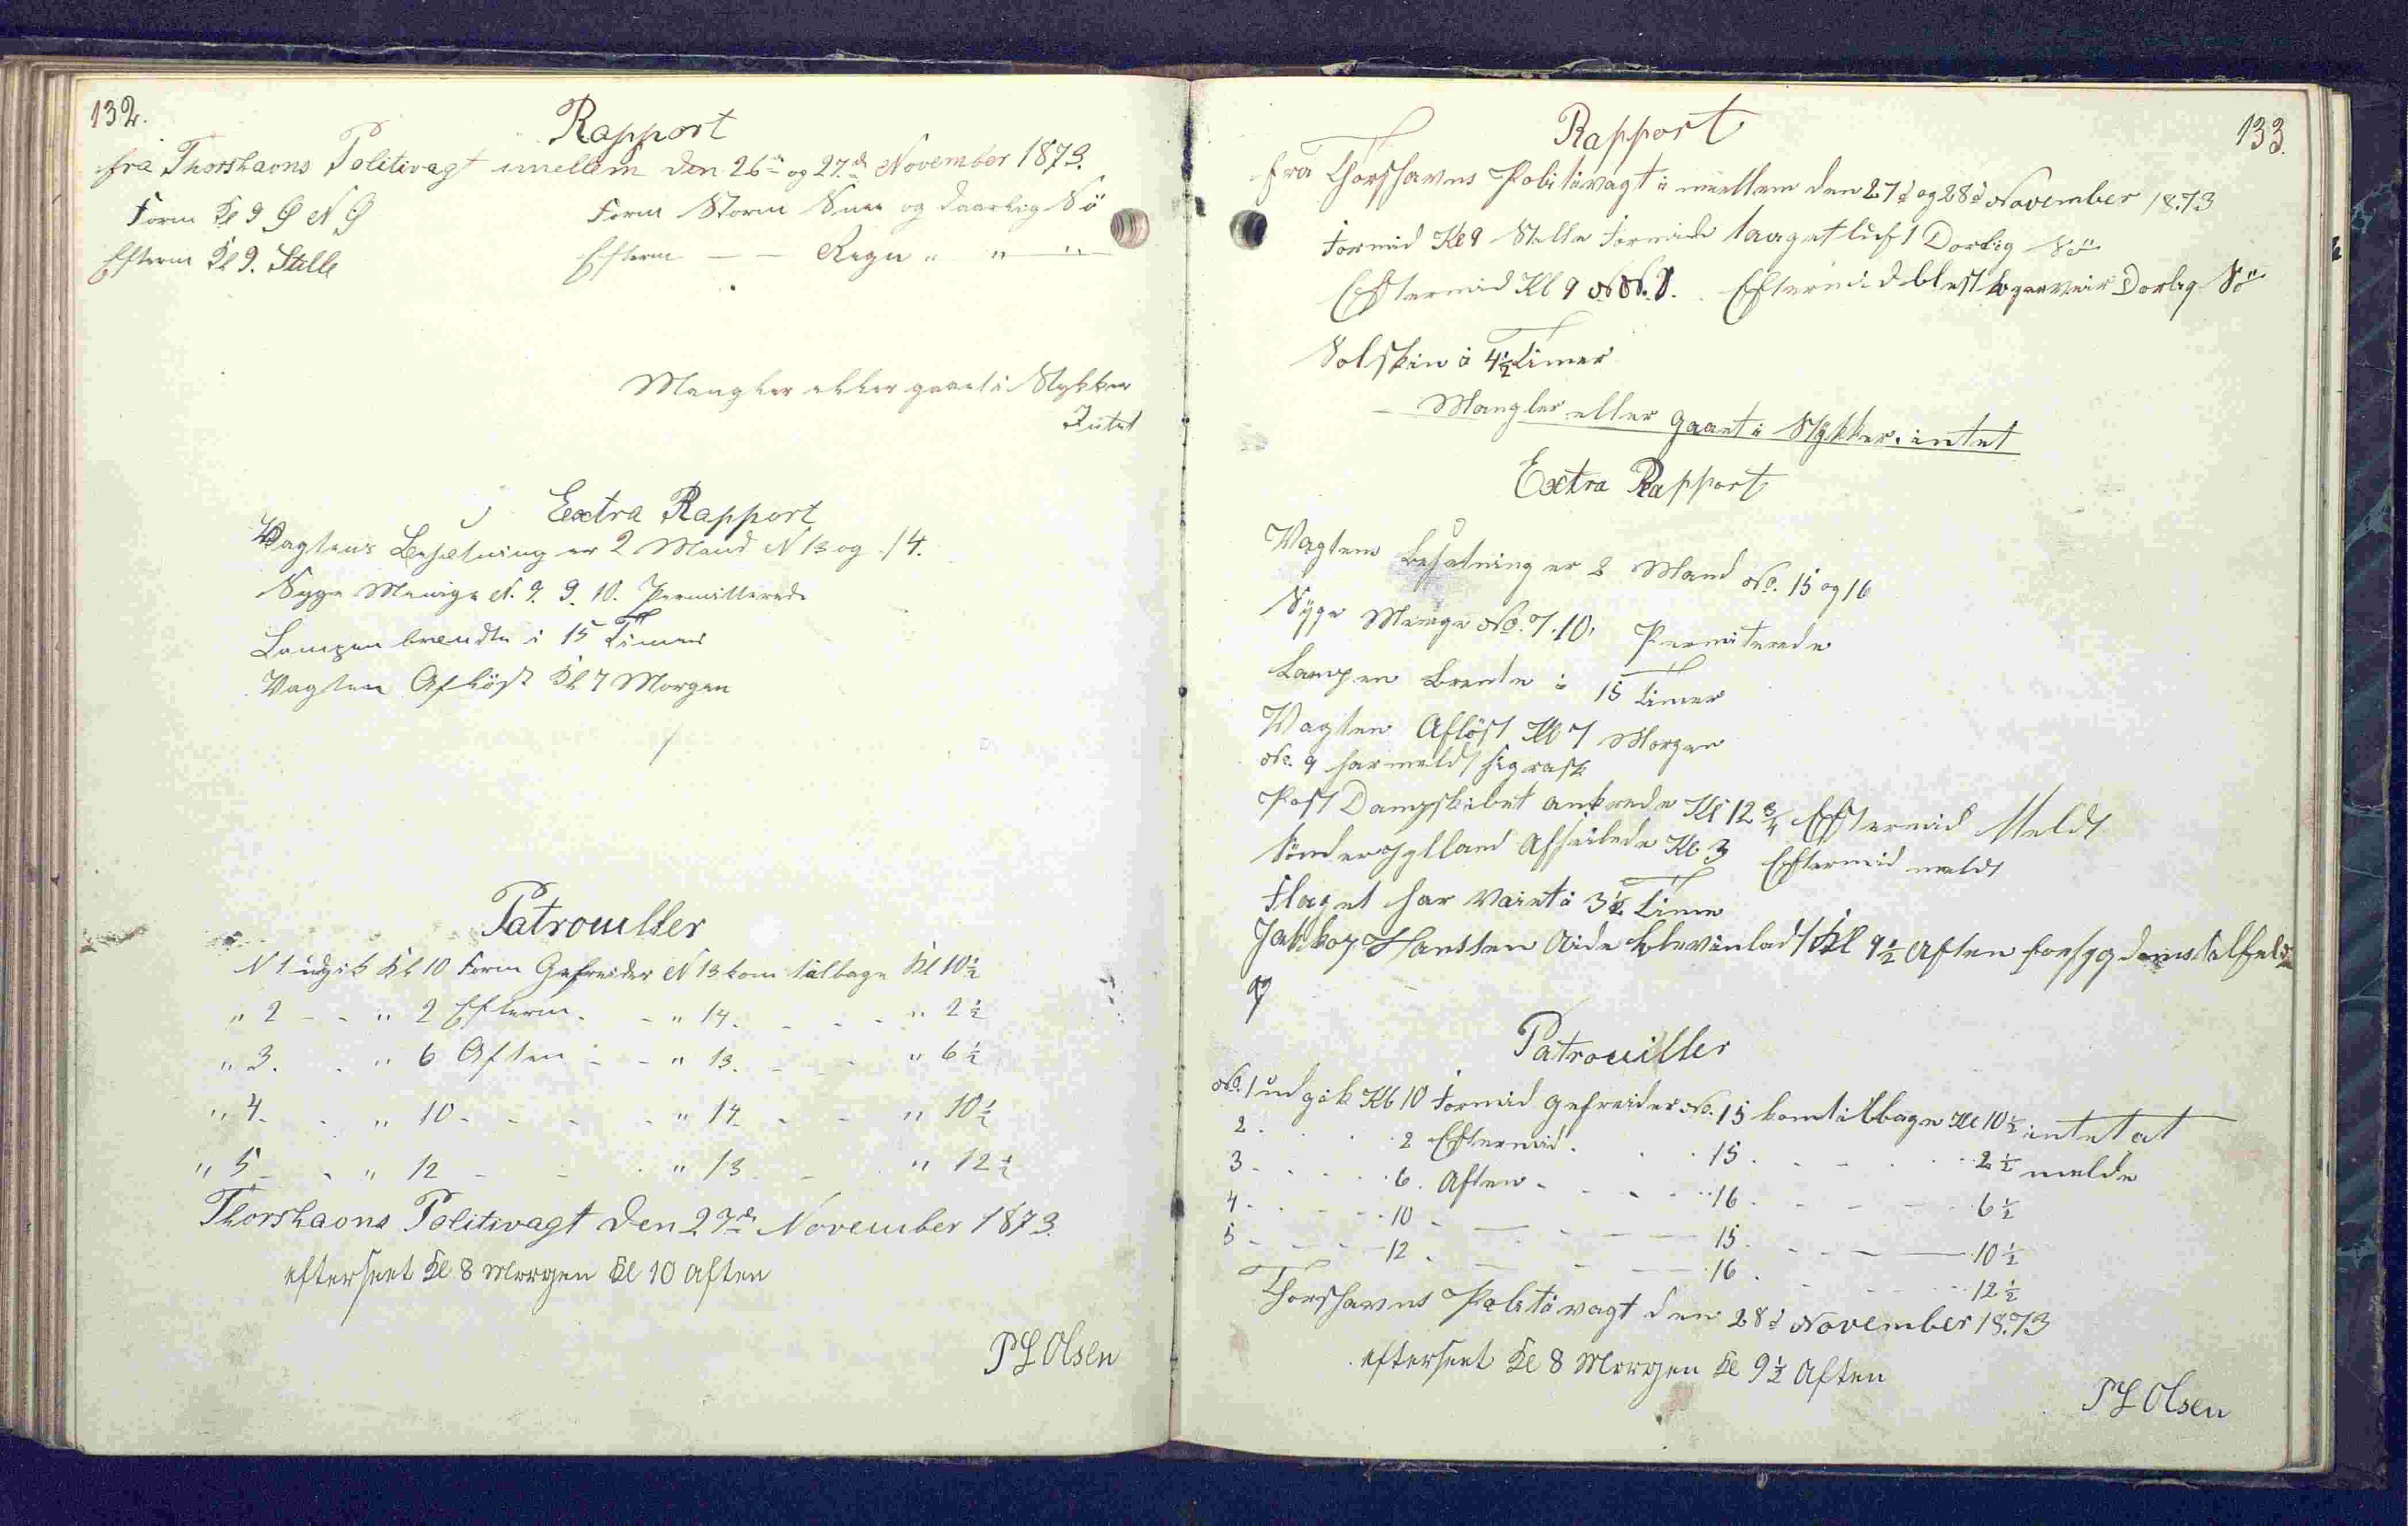 132.
Rapport
fra Thorshavns Politivagt imellem den 26de og 27de November 1873.
Form Kl 9 Ø N Ø
Form Storm Snee og daarlig Sö
Efterm Kl 9. Stille
Efterm — — Regn " " — " —
Mangler eller gaaet i Stykker
Intet
Extra Rapport
Vagtens Besætning er 2 Mand N 13 og 14.
Syge Menige N. 7. 9. 10. Permitterede
Lampen brændte i 15 Timer
Vagten Aflöst Kl 7 Morgen
Patrouiller
N 1 udgik Kl 10 Form Gefreider N 13 kom tilbage Kl 10½
" 2 - - " 2 Efterm. - " 14. - - - " 2½
" 3. - " 6 Aften - - " 13. - - " 6½
" 4. - " 10 - - - - " 14 - - " 10½
" 5 - - " 12 - - - " 13 - - " 12½
Thorshavns Politivagt den 27de November 1873.
efterseet Kl 8 Morgen Kl 10 Aften
P L Olsen
133.
Rapport
fra Thorshavns Politivagt i mellem den 27d og 28d November 1873
Formid Kl 9 Stille Formid taaget luft Dorlig Sö
Eftermid Kl 9 N.N.Ø. Eftermid blest Dorlig Sö
Solskin i 4½ Timer
Mangler eller gaaet i Stykker. intet
Extra Rapport
Vagtens Besatning er 2 Mand No. 15 og 16
Syge Menige No. 7. 10. Permiterede
Lampen Brente i 15 Timer
Vagten Aflöst Kl 7 Morgen
No. 9 har meldt sig rask
Post Dampskibet ankrede Kl 12¾ Eftermid Meldt
Sönderjylland Afseilede Kl 3 Eftermid meldt
Flaget har vaiet i 3½ Time
Jakkop Hansten Aide blev inladt Kl 9½ Aften for
Patrouiller
No. 1 udgik Kl 10 Formid Gefreider No. 15 kom tilbage Kl 10½ intet at
2 - - - 2 Eftermid. - - 15. - - - 2½ melde
3 - - - 6. Aften - - - 16 - - - 6½
4 - - - 10 - - - 15. - - - 10½
5 - - - 12 - - - 16. - - - 12½
Thorshavns Politivagt den 28d November 1873
efterseet Kl 8 Morgen Kl 9½ Aften
P L Olsen